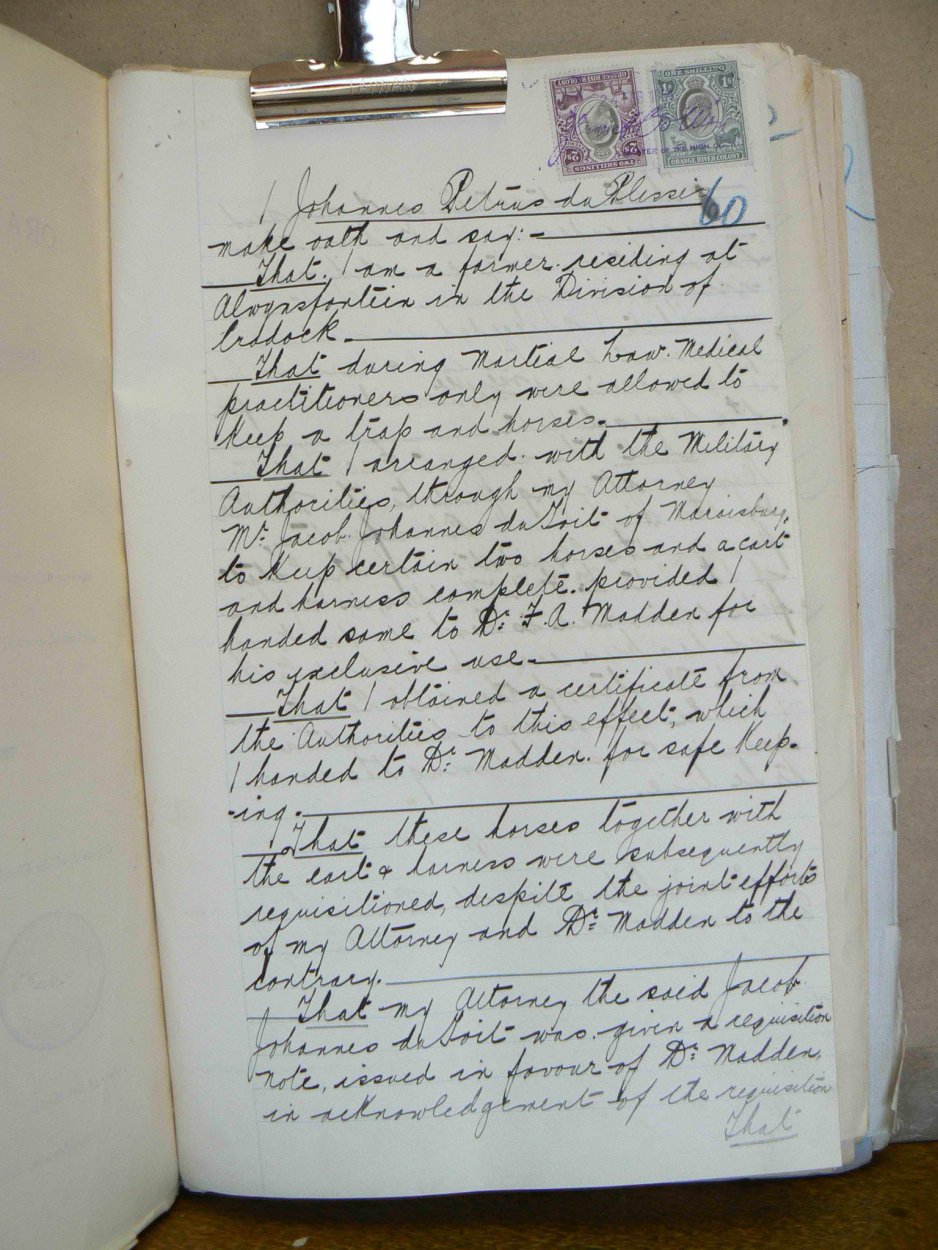 ORANGE RIVER COLONY
TWO SHILLINGS
2s 2s
ONE SHILLING
1s 1s
ORANGE RIVER COLONY
OF THE HIGH
60
I Johannes Petrus du Plessis
make oath and say:-
That I am a farmer residing at
Alwynsfontein in the Division of
Cradock.
That during Martial Law. Medical
practitioners only were allowed to
keep a trap and horses.
That I arranged with the Military
Authorities, through my Attorney
Mr. Jacob Johannes du Toit of Maraisburg,
to keep certain two horses and a cart
and harness complete. provided I
handed same to Dr. F. A. Madden for
his exclusive use.
That I obtained a certificate from
the Authorities to this effect, which
I handed to Dr. Madden for safe keep-
-ing.
That these horses together with
the cart & harness were subsequently
requisitioned, despite the joint efforts
of my Attorney and Dr. Madden to the
contrary.
That my Attorney the said Jacob
Johannes du Toit was given a requisition
note, issued in favour of Dr. Madden,
in acknowledgement of the requisition
That